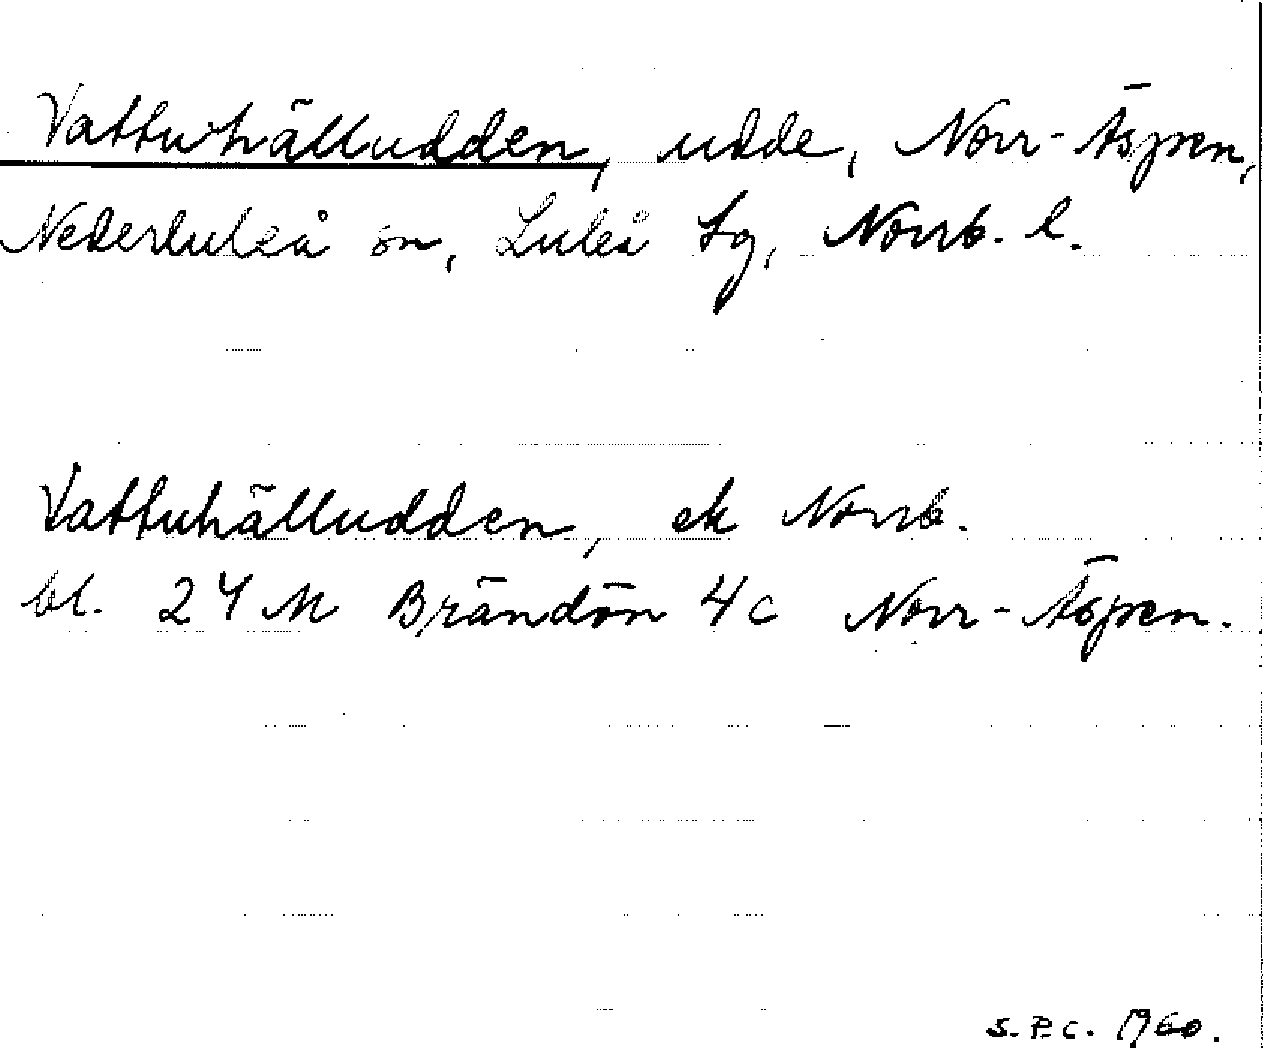 Vattuhälludden, udde, Norr-Äspen,
Nederluleå sn, Luleå tg, Norrb. l.
Vattuhälludden, ek Norrb.
bl. 24 M Brändön 4c Norr-Äspen.
S.P.C. 1960.